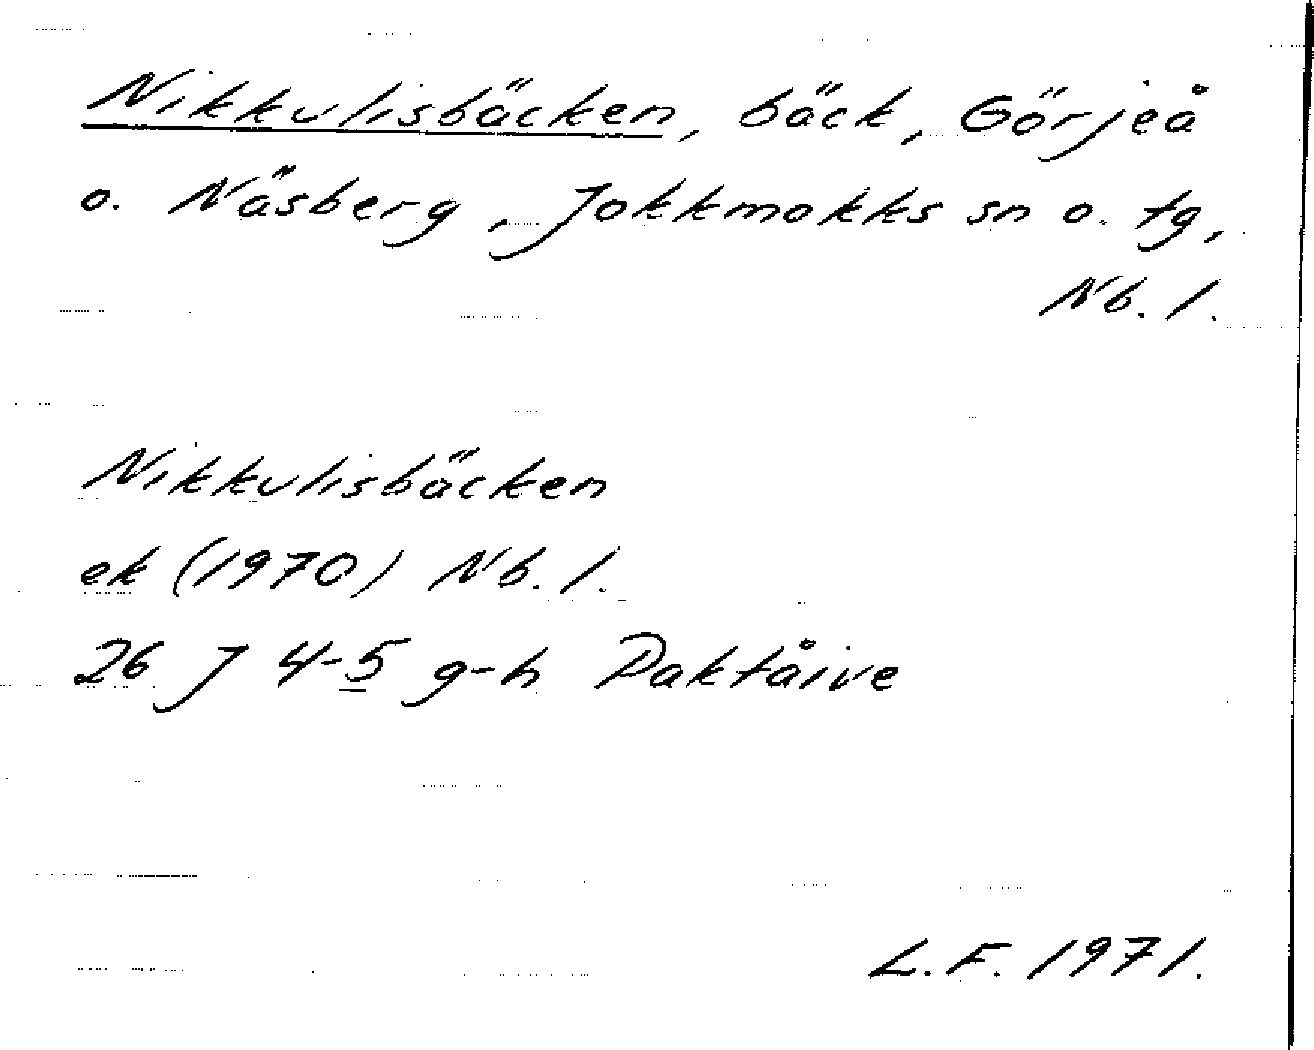 Nikkulisbäcken, bäck, Görjeå
o. Näsberg, Jokkmokks sn o. tg,
Nb. l.
Nikkulisbäcken
ek (1970) Nb. l.
26 J 4-5 g-h Paktåive
L.F. 1971.